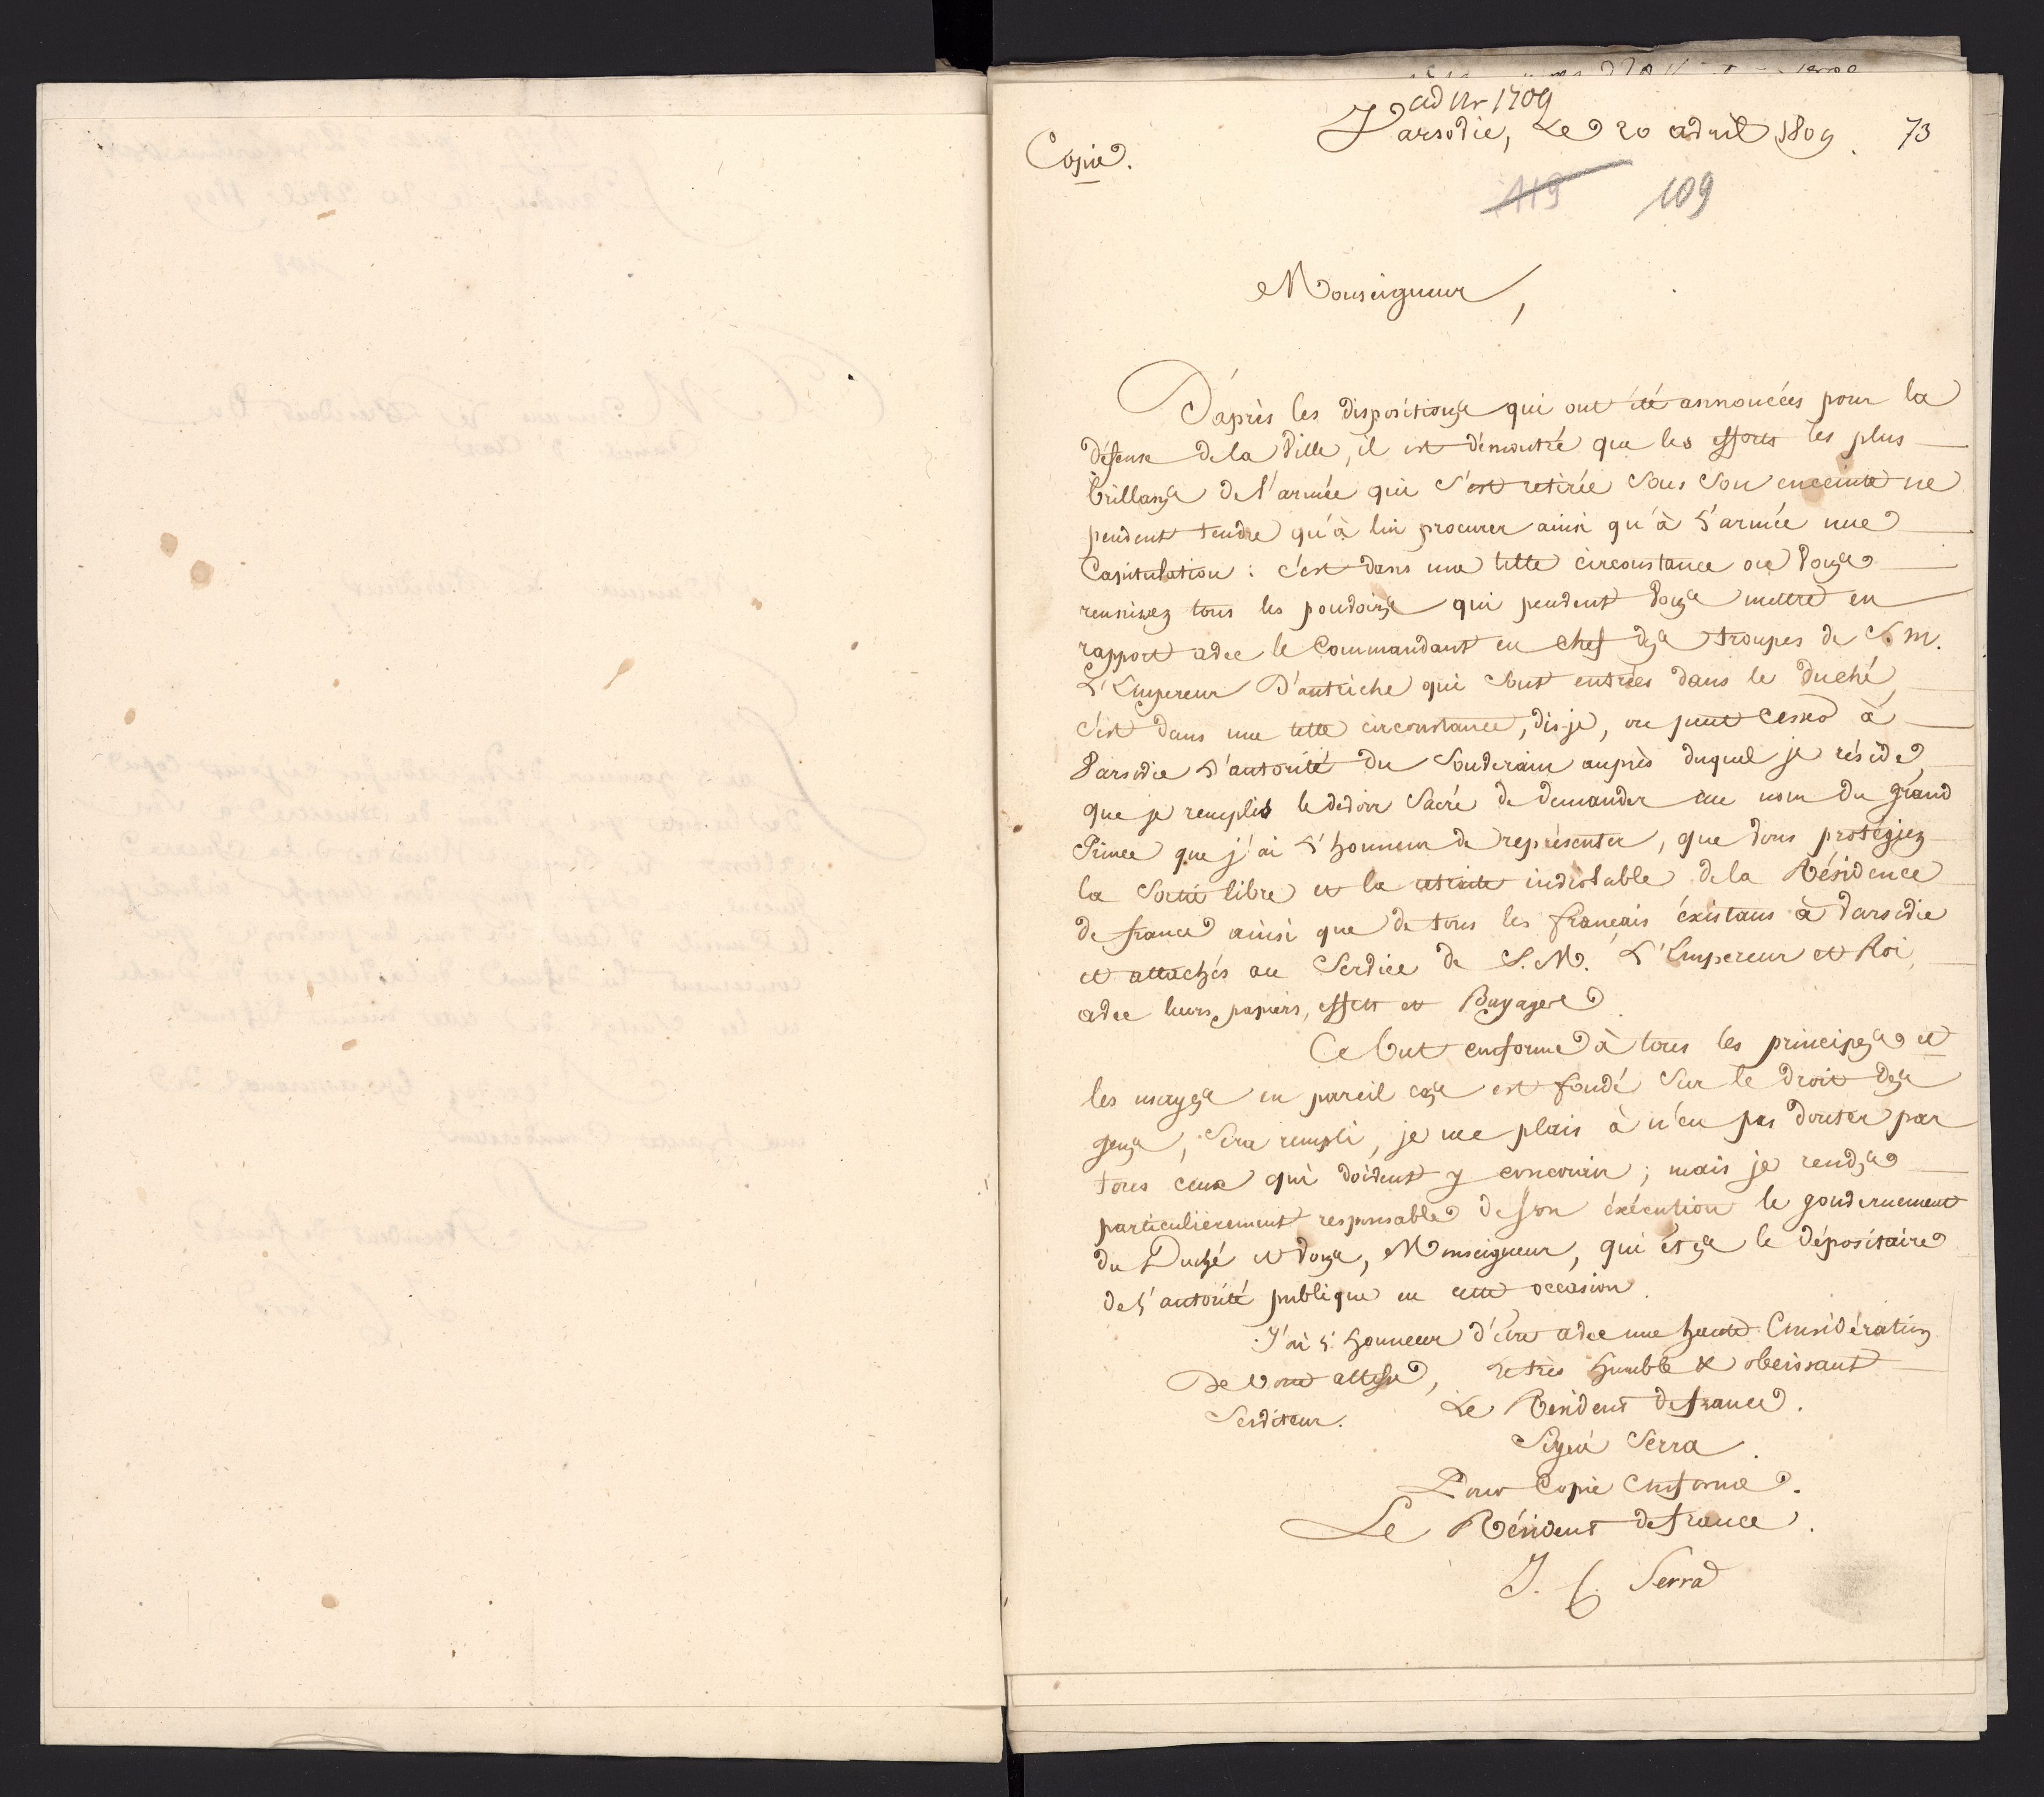 ad Nr 1709
Varsovie, Le 20 avril 1809. 73
Copie.
119 109
Monseigneur,
D'après les dispositions qui ont été annoncées pour la
défense de la Ville, il est démontré que les efforts les plus
brillans de l'armée qui s'est retirée sous son enceinte ne
peuvent tendre qu'à lui procurer ainsi qu'à l'armée une
Capitulation : c'est dans une telle circonstance où vous
reunissez tous les pouvoirs qui peuvent vous mettre en
rapport avec le Commandant en chef des troupes de S. M.
L'Empereur D'autriche qui sont entrées dans le duché,
c'est dans une telle circonstance, dis-je, où peut cesser à
Varsovie l'autorité du Souverain auprès duquel je réside,
que je remplis le devoir Sacré de demander au nom du grand
Prince que j'ai l'honneur de représenter, que vous protégiez
la Sortie libre et la retraite inviolable de la Résidence
de france ainsi que de tous les français éxistans à Varsovie
et attachés au Service de S. M. L'Empereur et Roi,
avec leurs papiers, effets et Bagages.
Ce but conforme à tous les principes et
les usages en pareil cas est fondé Sur le droit des
gens, Sera rempli, je me plais à n'en pas douter par
tous ceux qui doivent y concourir ; mais je rends
particulièrement responsable de son éxécution le gouvernement
du Duché et vous, Monseigneur, qui étes le dépositaire
de l'autorité publique en cette occasion.
J'ai l'honneur d'être avec une haute Considération
De votre altesse, le très humble & obeissant
Serviteur. Le Résident de france.
Signé Serra.
Pour Copie Conforme.
Le Résident de france.
J. C. Serra